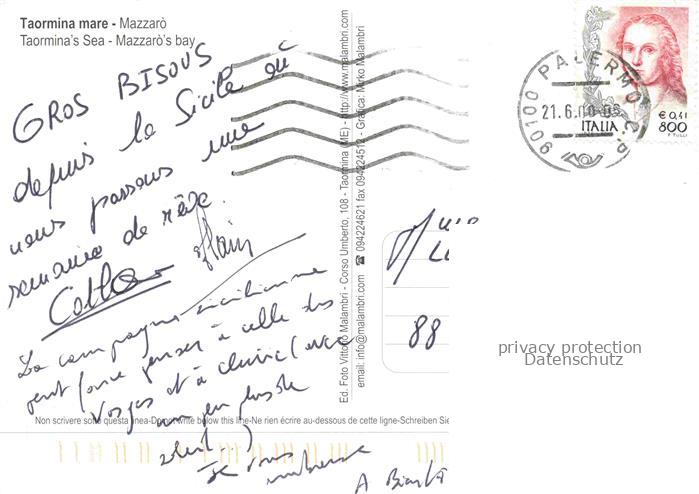 Taormina mare - Mazzarò
Taormina's Sea - Mazzarò's bay
GROS BISOUS
depuis la Sicile où
nous passons une
semaine de rêve.
Alain
La campagne sicilienne
peut faire penser à celle des
Vosges et à
un peu plus de
soleil...)
Je vous embrasse
A Bientôt
Non scrivere sotto questa linea-Do not write below this line-Ne rien écrire au-dessous de cette ligne-Schreiben Sie
Ed. Foto Vittorio Malambri - Corso Umberto, 108 - Taormina (ME) - http://www.malambri.com
email: info@malambri.com ☎ 094224621 fax 094224512 - Grafica: Mirko Malambri
90100 PALERMO C.P.
21.6.00
ITALIA
€ 0,41
800
88
privacy protection
Datenschutz